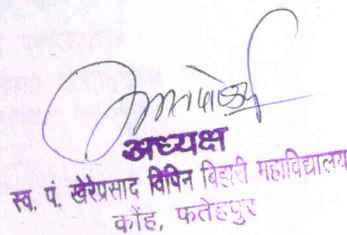 अध्यक्ष
स्व. पं. खेरेप्रसाद विपिन बिहारी महाविद्यालय
कोंह, फतेहपुर